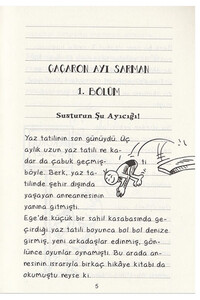 GAGARON AYI SARMAN
1. BÖLÜM
Susturun Şu Ayıcığı!
Yaz tatilinin son günüydü. Üç
aylık uzun yaz tatili ne ka-
dar da çabuk geçmiş-
ti
böyle. Berk, yaz ta-
tilinde şehir dışında
yaşayan anneannesinin
yanına gitmişti.
Ege'de küçük bir sahil kasabasında ge-
çirdiği yaz tatili boyunca bol bol denize
girmiş, yeni arkadaşlar edinmiş, gön-
lünce oyunlar oynamıştı. Bu arada an-
nesinin ısrarıyla birkaç hikâye kitabı da
okumuştu neyse ki.
5